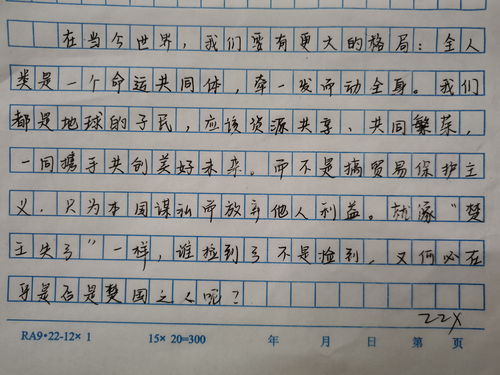 在当今世界，我们要有更大的格局：全人
类是一个命运共同体，牵一发而动全身。我们
都是地球的子民，应该资源共享、共同繁荣，
一同携手共创美好未来。而不是搞贸易保护主
义，只为本国谋私而放弃他人利益。就像“楚
王失弓”一样，谁捡到弓不是捡到，又何必在
乎是否是楚国之人呢？
ZZX
RA9·22-12×1 15×20=300 年 月 日 第 页